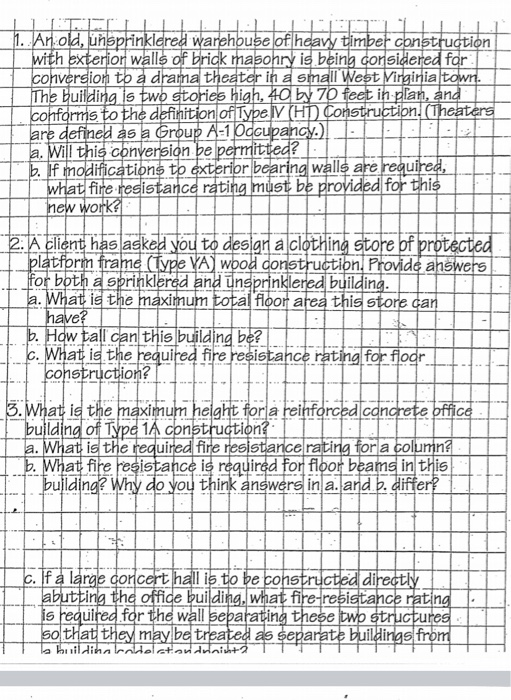 1. An old, unsprinklered warehouse of heavy timber construction
with exterior walls of brick masonry is being considered for
conversion to a drama theater in a small West Virginia town.
The building is two stories high, 40 by 70 feet in plan, and
conforms to the definition of Type IV (HT) Construction. (Theaters
are defined as a Group A-1 Occupancy.)
a. Will this conversion be permitted?
b. If modifications to exterior bearing walls are required,
what fire resistance rating must be provided for this
new work?
2. A client has asked you to design a clothing store of protected
platform frame (Type VA) wood construction. Provide answers
for both a sprinklered and unsprinklered building.
a. What is the maximum total floor area this store can
have?
b. How tall can this building be?
c. What is the required fire resistance rating for floor
construction?
3. What is the maximum height for a reinforced concrete office
building of Type 1A construction?
a. What is the required fire resistance rating for a column?
b. What fire resistance is required for floor beams in this
building? Why do you think answers in a. and b. differ?
c. If a large concert hall is to be constructed directly
abutting the office building, what fire-resistance rating
is required for the wall separating these two structures
so that they may be treated as separate buildings from
a building code standpoint?